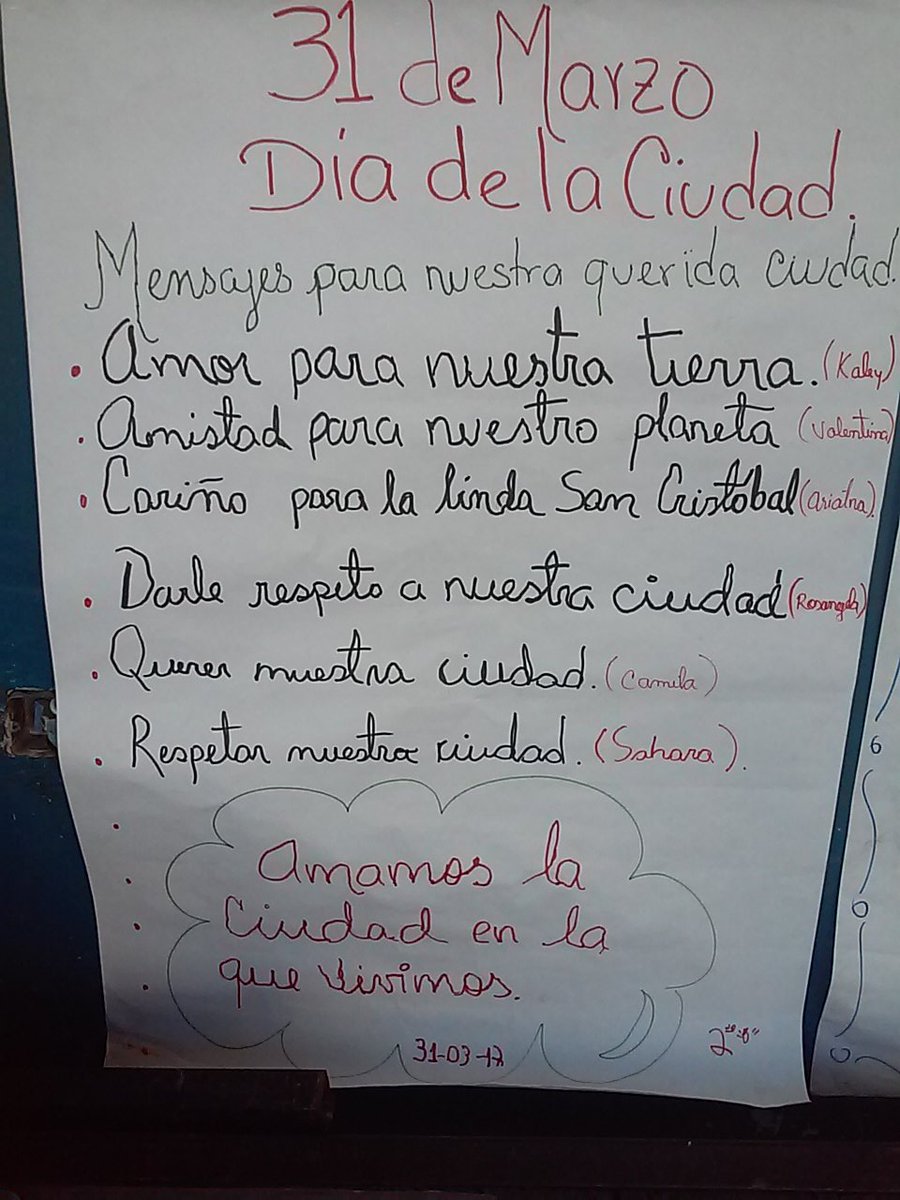 31 de Marzo
Día de la Ciudad.
Mensajes para nuestra querida ciudad.
• Amor para nuestra tierra. (Kaley)
• Amistad para nuestro planeta (Valentina)
• Cariño para la linda San Cristóbal (Ariatna).
• Darle respeto a nuestra ciudad (Rosangela)
• Querer nuestra ciudad. (Camila)
• Respetar nuestra ciudad. (Sahara).
Amamos la
Ciudad en la
que vivimos.
31-03-17